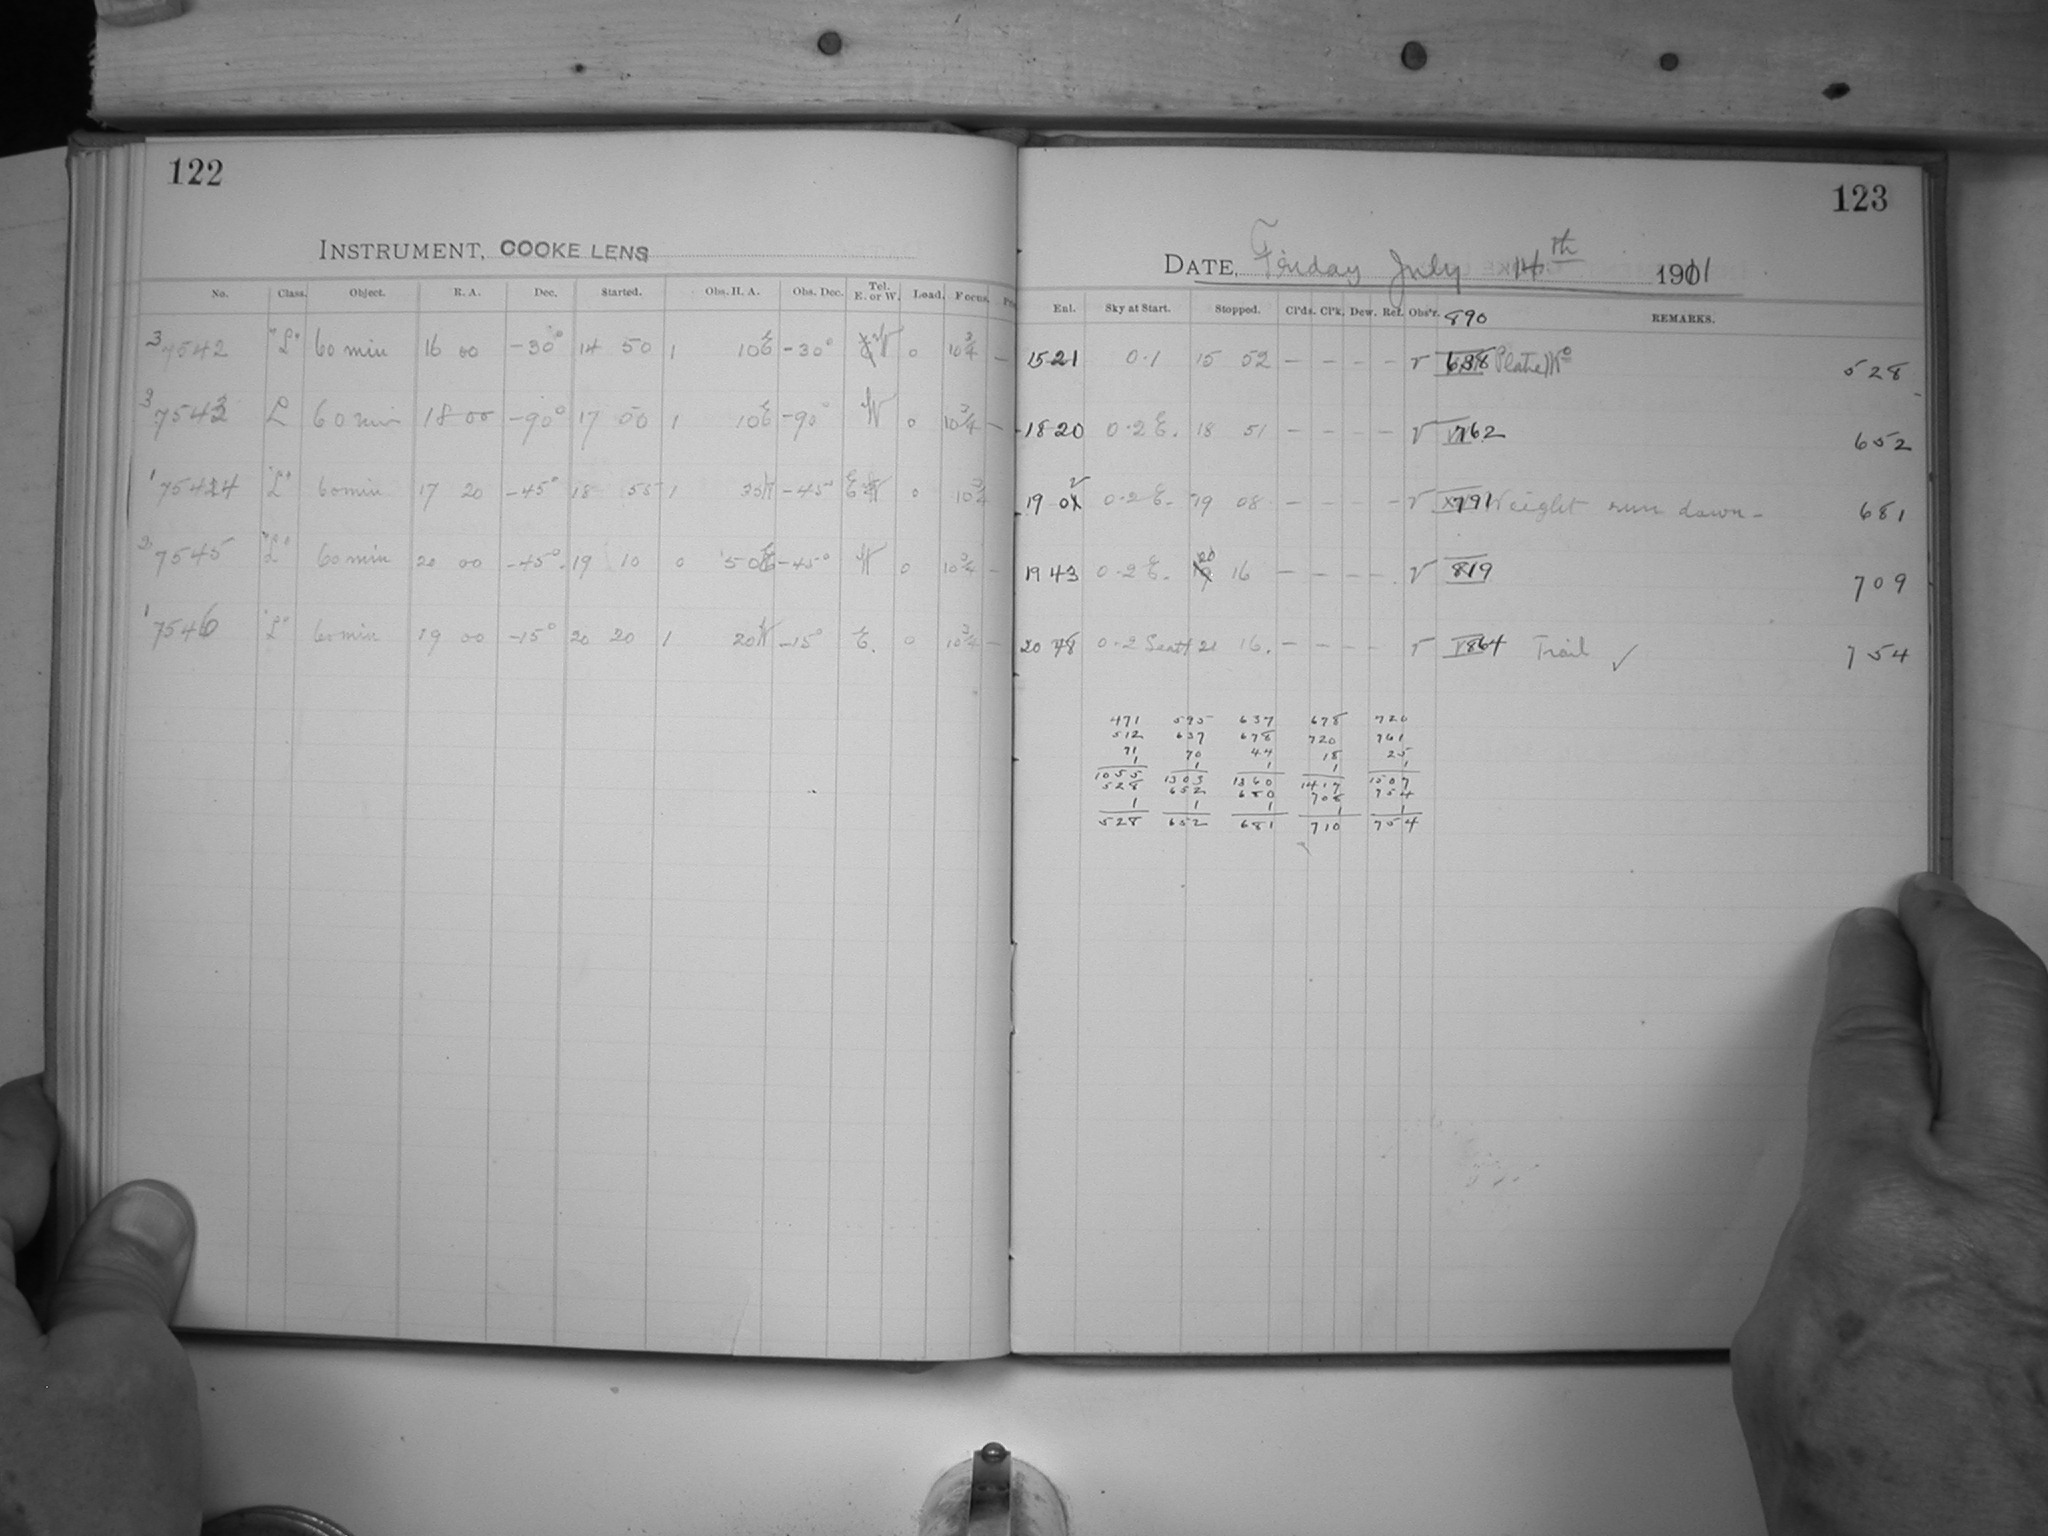 122
INSTRUMENT, COOKE LENS
No. Class. Object. R. A. Dec. Started. Obs. H. A. Obs. Dec. Tel. E. or W. Load. Focus.
3 7542 "L" 60 min 16 00 -30° 14 50 1 10 E -30° W 0 10 3/4 -
3 7543 L 60 min 18 00 -90° 17 50 1 10 E -90° W 0 10 3/4 -
1 7544 "L" 60 min 17 20 -45° 18 55 1 35 W -45° E 0 10 3/4
3 7545 "L" 60 min 20 00 -45° 19 10 0 50 E -45° W 0 10 3/4 -
1 7546 "L" 60 min 19 00 -15° 20 20 1 20 W -15° E. 0 10 3/4 -
123
DATE, Friday July 14th 1911
Enl. Sky at Start. Stopped. Cl'ds. Cl'k. Dew. Ref. Obs'r. 890 REMARKS.
15 21 0.1 15 52 - - - - V 638 Plate W° 528
18 20 0.2 E. 18 51 - - - - V 762 652
19 02 0.2 E. 19 08 - - - - V 791 Weight run down - 681
19 43 0.2 E. 20 16 - - - - V 819 709
20 48 0.2 Scatt 21 16. - - - - V 864 Trail ✓ 754
471 595 637 678 720
512 637 678 720 761
71 70 44 18 25
1 1 1 1 1
1055 1303 1360 1417 1507
528 652 680 708 754
1 1 1 1 1
528 652 681 710 754